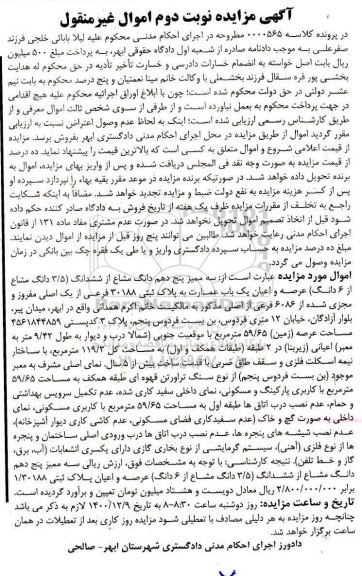 آگهی مزایده نوبت دوم اموال غیرمنقول
در پرونده کلاسه ۰۰۰۰۵۶۵ مطروحه در اجرای احکام مدنی محکوم علیه لیلا بابائی خلجی فرزند
صفرعلی به موجب دادنامه صادره از شعبه اول دادگاه حقوقی ابهر، به پرداخت مبلغ ۵۰۰ میلیون
ریال بابت اصل خواسته به انضمام خسارات دادرسی و خسارت تأخیر تأدیه در حق محکوم له هدایت
بخشی پور قره سقال فرزند بخشعلی با وکالت خانم مینا نعمتیان و پنج درصد محکوم به بابت نیم
عشر دولتی در حق دولت محکوم شده است؛ چون با ابلاغ اوراق اجرائیه محکوم علیه هیچ اقدامی
در جهت پرداخت محکوم به بعمل نیاورده است و از طرفی از سوی شخص ثالث اموال معرفی و از
طریق کارشناس رسمی ارزیابی شده است؛ اینک به لحاظ عدم وصول اعتراض نسبت به ارزیابی
مقرر گردید اموال از طریق مزایده در محل اجرای احکام مدنی دادگستری ابهر بفروش برسد. مزایده
از قیمت اعلامی شروع و اموال متعلق به کسی است که بالاترین قیمت را پیشنهاد نماید. ده درصد
از قیمت مزایده به صورت وجه نقد فی المجلس دریافت شده و پس از واریز بهای مزایده، اموال به
برنده تحویل داده خواهد شد. در صورتیکه برنده مزایده در موعد مقرر بقیه بهاء را نپردازد سپرده او
پس از کسر هزینه مزایده به نفع دولت ضبط و مزایده تجدید خواهد شد. مضافاً به اینکه شکایت
راجع به تخلف از مقررات مزایده ظرف یک هفته از تاریخ فروش به دادگاه صادر کننده حکم داده
شود قبل از اتخاذ تصمیم اموال تحویل نخواهد شد. در صورت عدم مشتری مفاد ماده ۱۳۱ از قانون
اجرای احکام مدنی رعایت خواهد شد. طالبین می توانند پنج روز قبل از مزایده از اموال دیدن نمایند.
مبلغ ده درصد مزایده به حساب سپرده دادگستری واریز و یا طی یک فقره چک بین بانکی در زمان
مزایده وصول می گردد.
اموال مورد مزایده عبارت است از: سه ممیز پنج دهم دانگ مشاع از ششدانگ (۳/۵ دانگ مشاع
از ۶ دانگ) عرصه و اعیان یک باب عمارت به پلاک ثبتی ۳۰۱۸۸ فرعی از یک اصلی مفروز و
مجزی شده از ۶۰۸۶ فرعی از اصلی مذکور به مالکیت خانم اکرم همدانی واقع در ابهر، میدان پیر،
بلوار آزادگان، خیابان ۱۲ متری فردوس، بن بست فردوس پنجم، پلاک ۳ کدپستی ۴۵۶۱۸۴۴۸۵۹
مساحت عرصه (زمین) ۵۹/۶۵ مترمربع با موقعیت جنوبی (شمالا درب و دیوار به طول ۹/۴۲ متر به
معبر) اعیانی (زیربنا) در ۲ طبقه (طبقات همکف و اول) به مساحت کل ۱۱۹/۳ مترمربع، با ساختار
نیمه اسکلت فلزی و سقف طاق ضربی با قدمت ساخت بیش از ۵ سال. نمای اصلی مشرف به معبر
موجود (بن بست فردوس پنجم) از نوع سنگ تراورتن قهوه ای طبقه همکف به مساحت ۵۹/۶۵
مترمربع با کاربری پارکینگ و مسکونی، نمای داخلی سفید کاری شده، عدم تکمیل سرویس بهداشتی
و حمام، عدم نصب درب اتاق ها طبقه اول به مساحت ۵۹/۶۵ مترمربع با کاربری مسکونی، نمای
داخلی به صورت گچ و خاک (عدم سفیدکاری فضای مسکونی، عدم کاشی کاری دیوار آشپزخانه)،
عدم نصب شیشه های پنجره ها، عدم نصب درب اتاق ها درب ورودی اصلی ساختمان و پنجره
ها از نوع فلزی (آهنی)، سیستم گرمایشی از نوع بخاری گازی دارای یکسری انشعابات (آب، برق،
گاز و خط تلفن). نتیجه کارشناسی: با توجه به مشخصات فوق، ارزش ریالی سه ممیز پنج دهم
دانگ مشاع از ششدانگ (۳/۵ دانگ مشاع از ۶ دانگ) عرصه و اعیان پلاک ثبتی ۱/۳۰۱۸۸
برابر ۲/۸۰۰/۰۰۰/۰۰۰ ریال معادل دویست و هشتاد میلیون تومان تعیین و برآورد گردیده است.
تاریخ و ساعت مزایده: روز دوشنبه ساعت ۸:۳۰-۸ به تاریخ ۱۴۰۰/۱۲/۹ لازم به ذکر می باشد
چنانچه روز مزایده به هر دلیلی مصادف با تعطیلی شود مزایده روز کاری بعد از تعطیلات در همان
ساعت برگزار خواهد شد.
دادورز اجرای احکام مدنی دادگستری شهرستان ابهر - صالحی